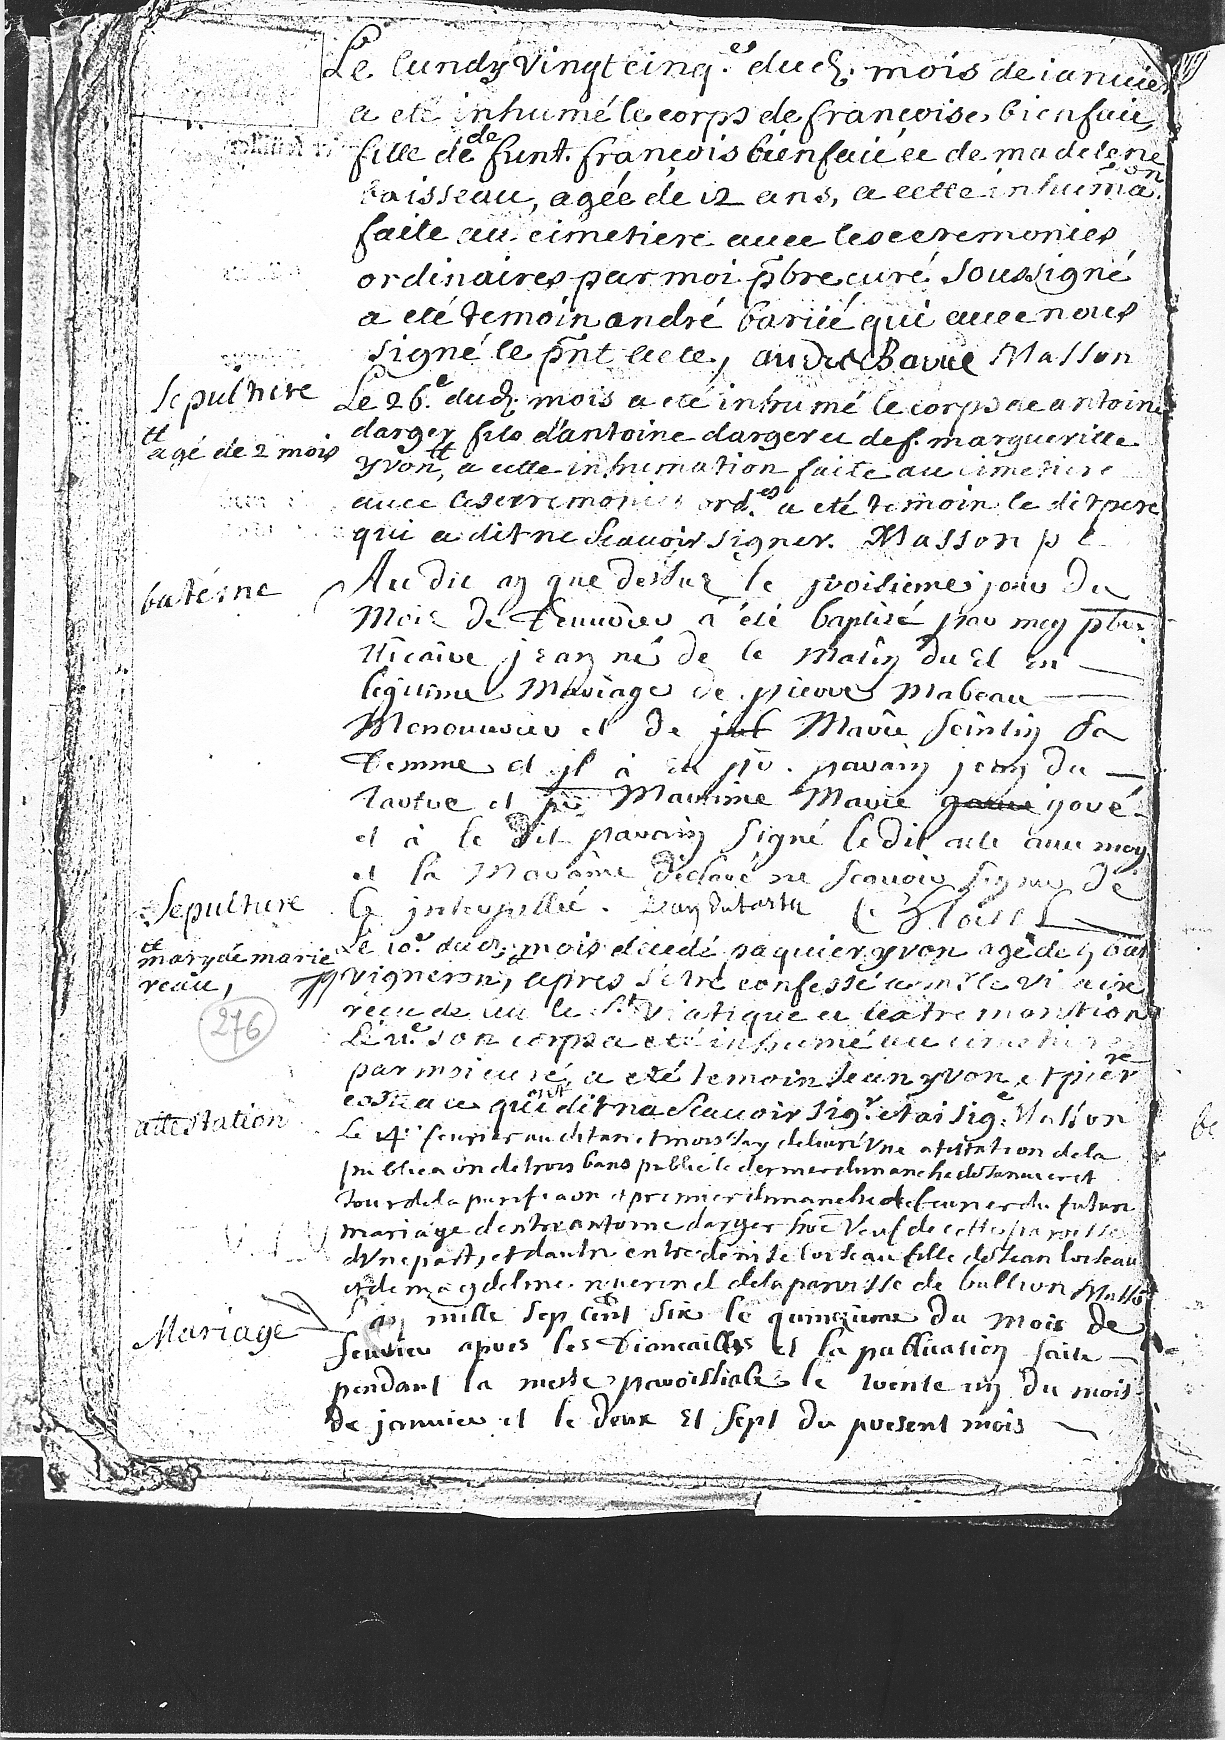 Le lundy vingtcinq.e dud. mois de ianuier
a eté inhumé le corps de francoise bienfaié
fille de defunt. francois bienfaié et de madelene
baisseau, agée de 12 ans, a cette inhumaon.
faite au cimetiere auec les ceremonies
ordinaires par moi pbre curé soussigné
a eté temoin andré barié qui auec nous
signé le pnt acte, andre Barie Masson
Sepulture
Le 26.e dud. mois a eté inhumé le corps de antoine
darger fils d'antoine darger et de f. margueritte
agé de 2 mois
yvon, a cette inhumation faite au cimetiere
auec les ceremonies ord.es a eté temoin le dit pere
qui a dit ne scauoir signer. Masson p c
bateme
Au dit an que dessus le troisieme jour du
Mois de feuurier a été baptisé par moy pbre
Vicaire jean né de le matin du et en
legitime Mariage de pierre Mabeau
Menouurier et de Marie seintin sa
femme et il a eu pr. parain jean du
tartre et pr. Maraine Marie joué
et a le dit parain signé le dit acte auec moy
et la Maraine declaré ne scauoir signer de
ce interpellée. Jean Dutartre
Sepulture
mary de marie
reau,
Le 10.e dud. mois decedé yvon agé de
vigneron, apres s'etre confessé a mr le vicaire
recu le St. Viatique et l'extremonction
Le son corps a eté inhumé au cimetiere
par moi curé, a eté temoin Jean yvon, et pierre
qui ont dit ne scauoir sig.r et ai sig.e Masson
276
attestation
Le 4e feurier au dit an et mois j'ay deliuré Vne atestation de la
publicaon de trois bans publié le dernier dimanche de Januier et
Jour de la purificaon et premier dimanche de feurier du futur
mariage d'entre antoine darger hoe Veuf de cette paroisse
d'vne part, et d'autre entre denise loiseau fille de Jean loiseau
et de magdelene de la paroisse de bullion Masson
Mariage
L'an mille sept cent six le quinzieme du mois de
feurier apres les fiancailles et la publication faite
pendant la messe paroissialle le trente un du mois
de januier et le deux et sept du present mois